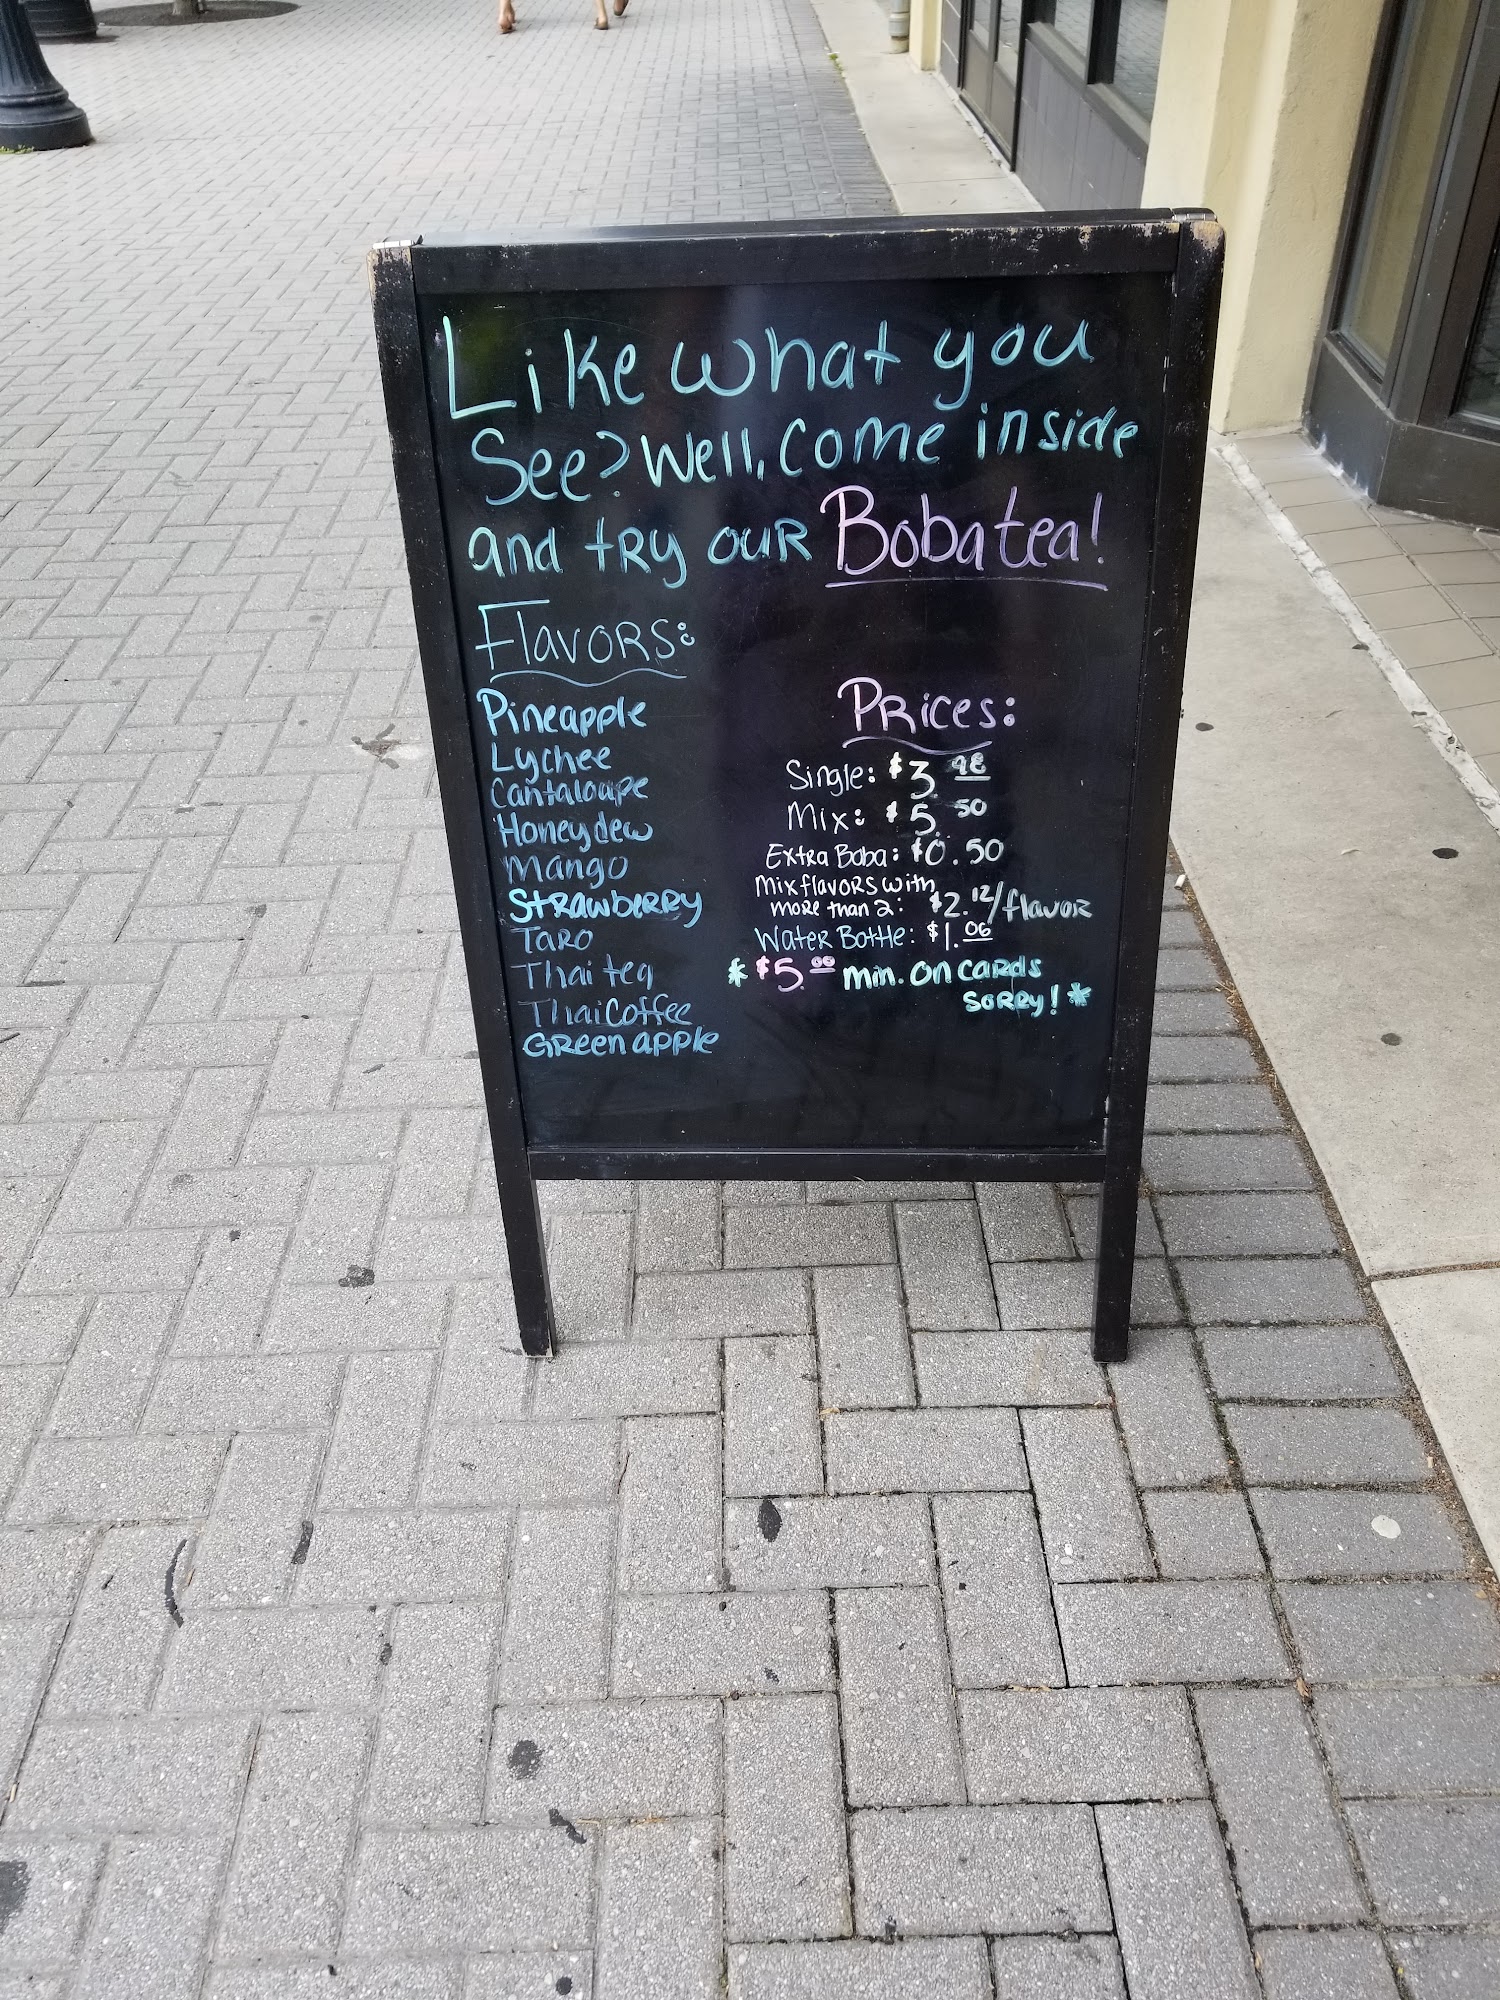 Like what you
See? Well, come inside
and try our Boba tea!
Flavors:
Pineapple
Lychee
Cantaloupe
Honeydew
Mango
Strawberry
Taro
Thai tea
Thai Coffee
Green apple
Prices:
Single: $3.98
Mix: $5.50
Extra Boba: $0.50
Mix flavors with
more than 2: $2.12/flavor
Water Bottle: $1.06
* $5.00 min. on cards
sorry! *